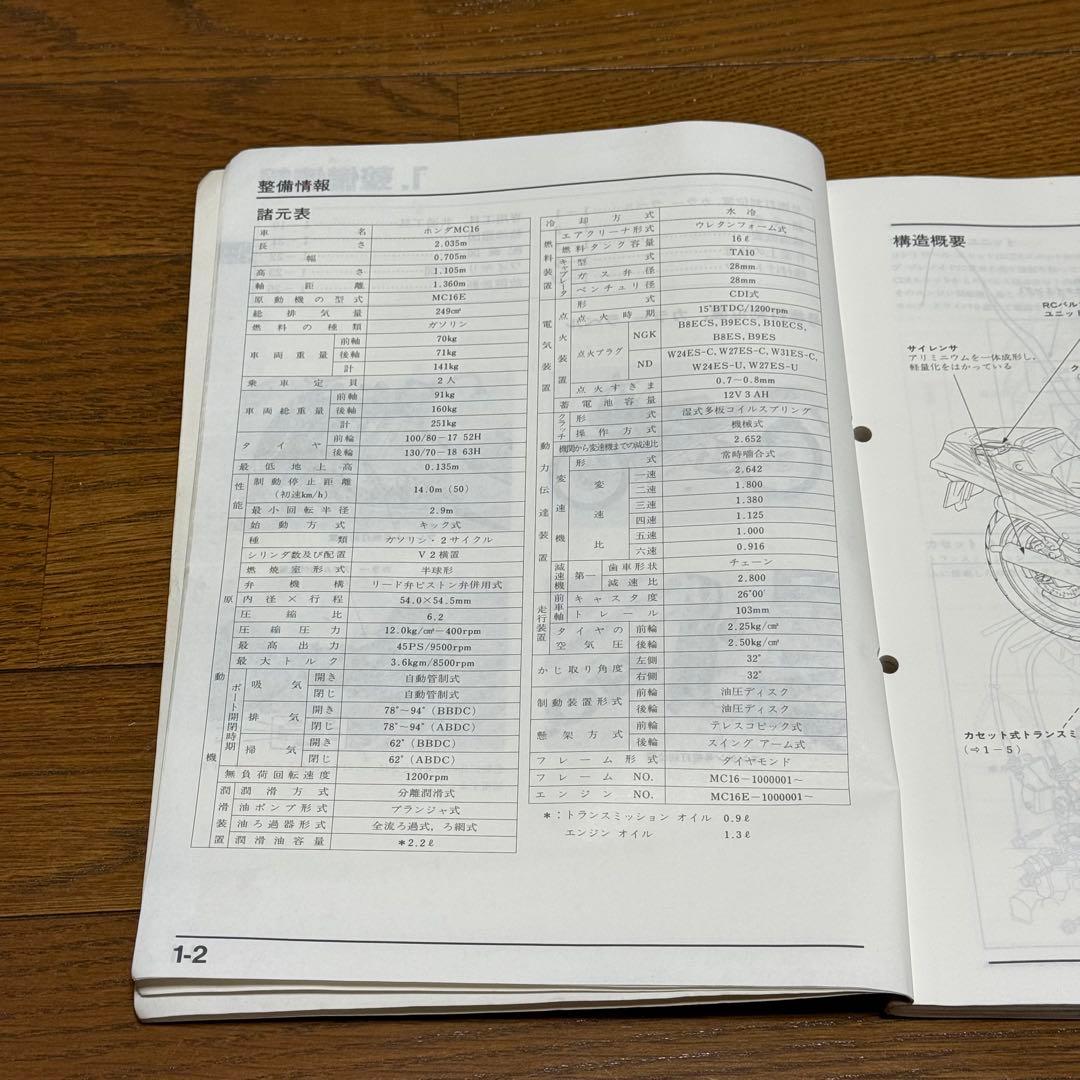 整備情報
諸元表
車名 ホンダMC16
長さ 2.035m
幅 0.705m
高さ 1.105m
軸距離 1.360m
原動機の型式 MC16E
総排気量 249㎤
燃料の種類 ガソリン
車両重量 前軸 70kg
後軸 71kg
計 141kg
乗車定員 2人
車両総重量 前軸 91kg
後軸 160kg
計 251kg
タイヤ 前輪 100/80−17 52H
後輪 130/70−18 63H
最低地上高 0.135m
性能 制動停止距離 (初速km/h) 14.0m (50)
最小回転半径 2.9m
原動機 始動方式 キック式
種類 ガソリン・2サイクル
シリンダ数及び配置 V2横置
燃焼室形式 半球形
弁機構 リード弁ピストン弁併用式
内径×行程 54.0×54.5mm
圧縮比 6.2
圧縮圧力 12.0kg/㎠−400rpm
最高出力 45PS/9500rpm
最大トルク 3.6kgm/8500rpm
ポート開閉時期 吸気 開き 自動管制式
閉じ 自動管制式
排気 開き 78°~94° (BBDC)
閉じ 78°~94° (ABDC)
掃気 開き 62° (BBDC)
閉じ 62° (ABDC)
無負荷回転速度 1200rpm
潤滑装置 潤滑方式 分離潤滑式
油ポンプ形式 プランジャ式
油ろ過器形式 全流ろ過式,ろ網式
潤滑油容量 *2.2ℓ
冷却方式 水冷
燃料装置 エアクリーナ形式 ウレタンフォーム式
燃料タンク容量 16ℓ
キャブレータ 型式 TA10
ガス弁径 28mm
ベンチュリ径 28mm
電気装置 点火装置 形式 CDI式
点火時期 15°BTDC/1200rpm
点火プラグ NGK B8ECS, B9ECS, B10ECS,
B8ES, B9ES
ND W24ES-C, W27ES-C, W31ES-C,
W24ES-U, W27ES-U
点火すきま 0.7~0.8mm
蓄電池容量 12V 3AH
動力伝達装置 クラッチ 形式 湿式多板コイルスプリング
操作方式 機械式
機関から変速機までの減速比 2.652
変速機 形式 常時噛合式
変速比 一速 2.642
二速 1.800
三速 1.380
四速 1.125
五速 1.000
六速 0.916
減速機 第一 歯車形状 チェーン
減速比 2.800
走行装置 前車軸 キャスタ度 26°00′
トレール 103mm
タイヤの空気圧 前輪 2.25kg/㎠
後輪 2.50kg/㎠
かじ取り角度 左側 32°
右側 32°
制動装置形式 前輪 油圧ディスク
後輪 油圧ディスク
懸架方式 前輪 テレスコピック式
後輪 スイング アーム式
フレーム形式 ダイヤモンド
フレーム NO. MC16−1000001~
エンジン NO. MC16E−1000001~
*:トランスミッション オイル 0.9ℓ
エンジン オイル 1.3ℓ
1-2
構造概要
RCバル
ユニット
サイレンサ
アリミニウムを一体成形し,
軽量化をはかっている
ク
カセット式トランスミ
(⇨1−5)